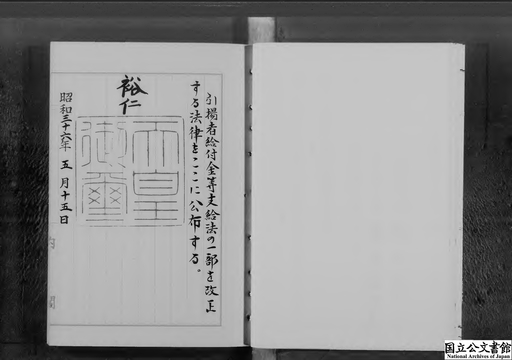 引揚者給付金等支給法の一部を改正
する法律をここに公布する。
裕仁
天皇
御璽
昭和三十六年五月十五日
国立公文書館
National Archives of Japan